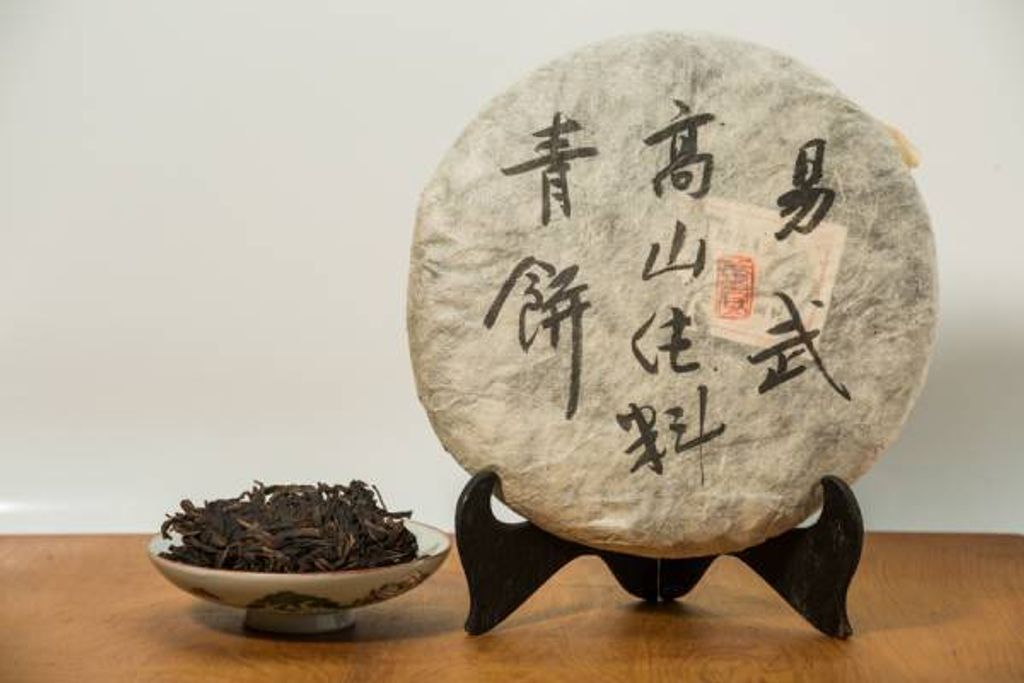 易武
高山佳料
青餅